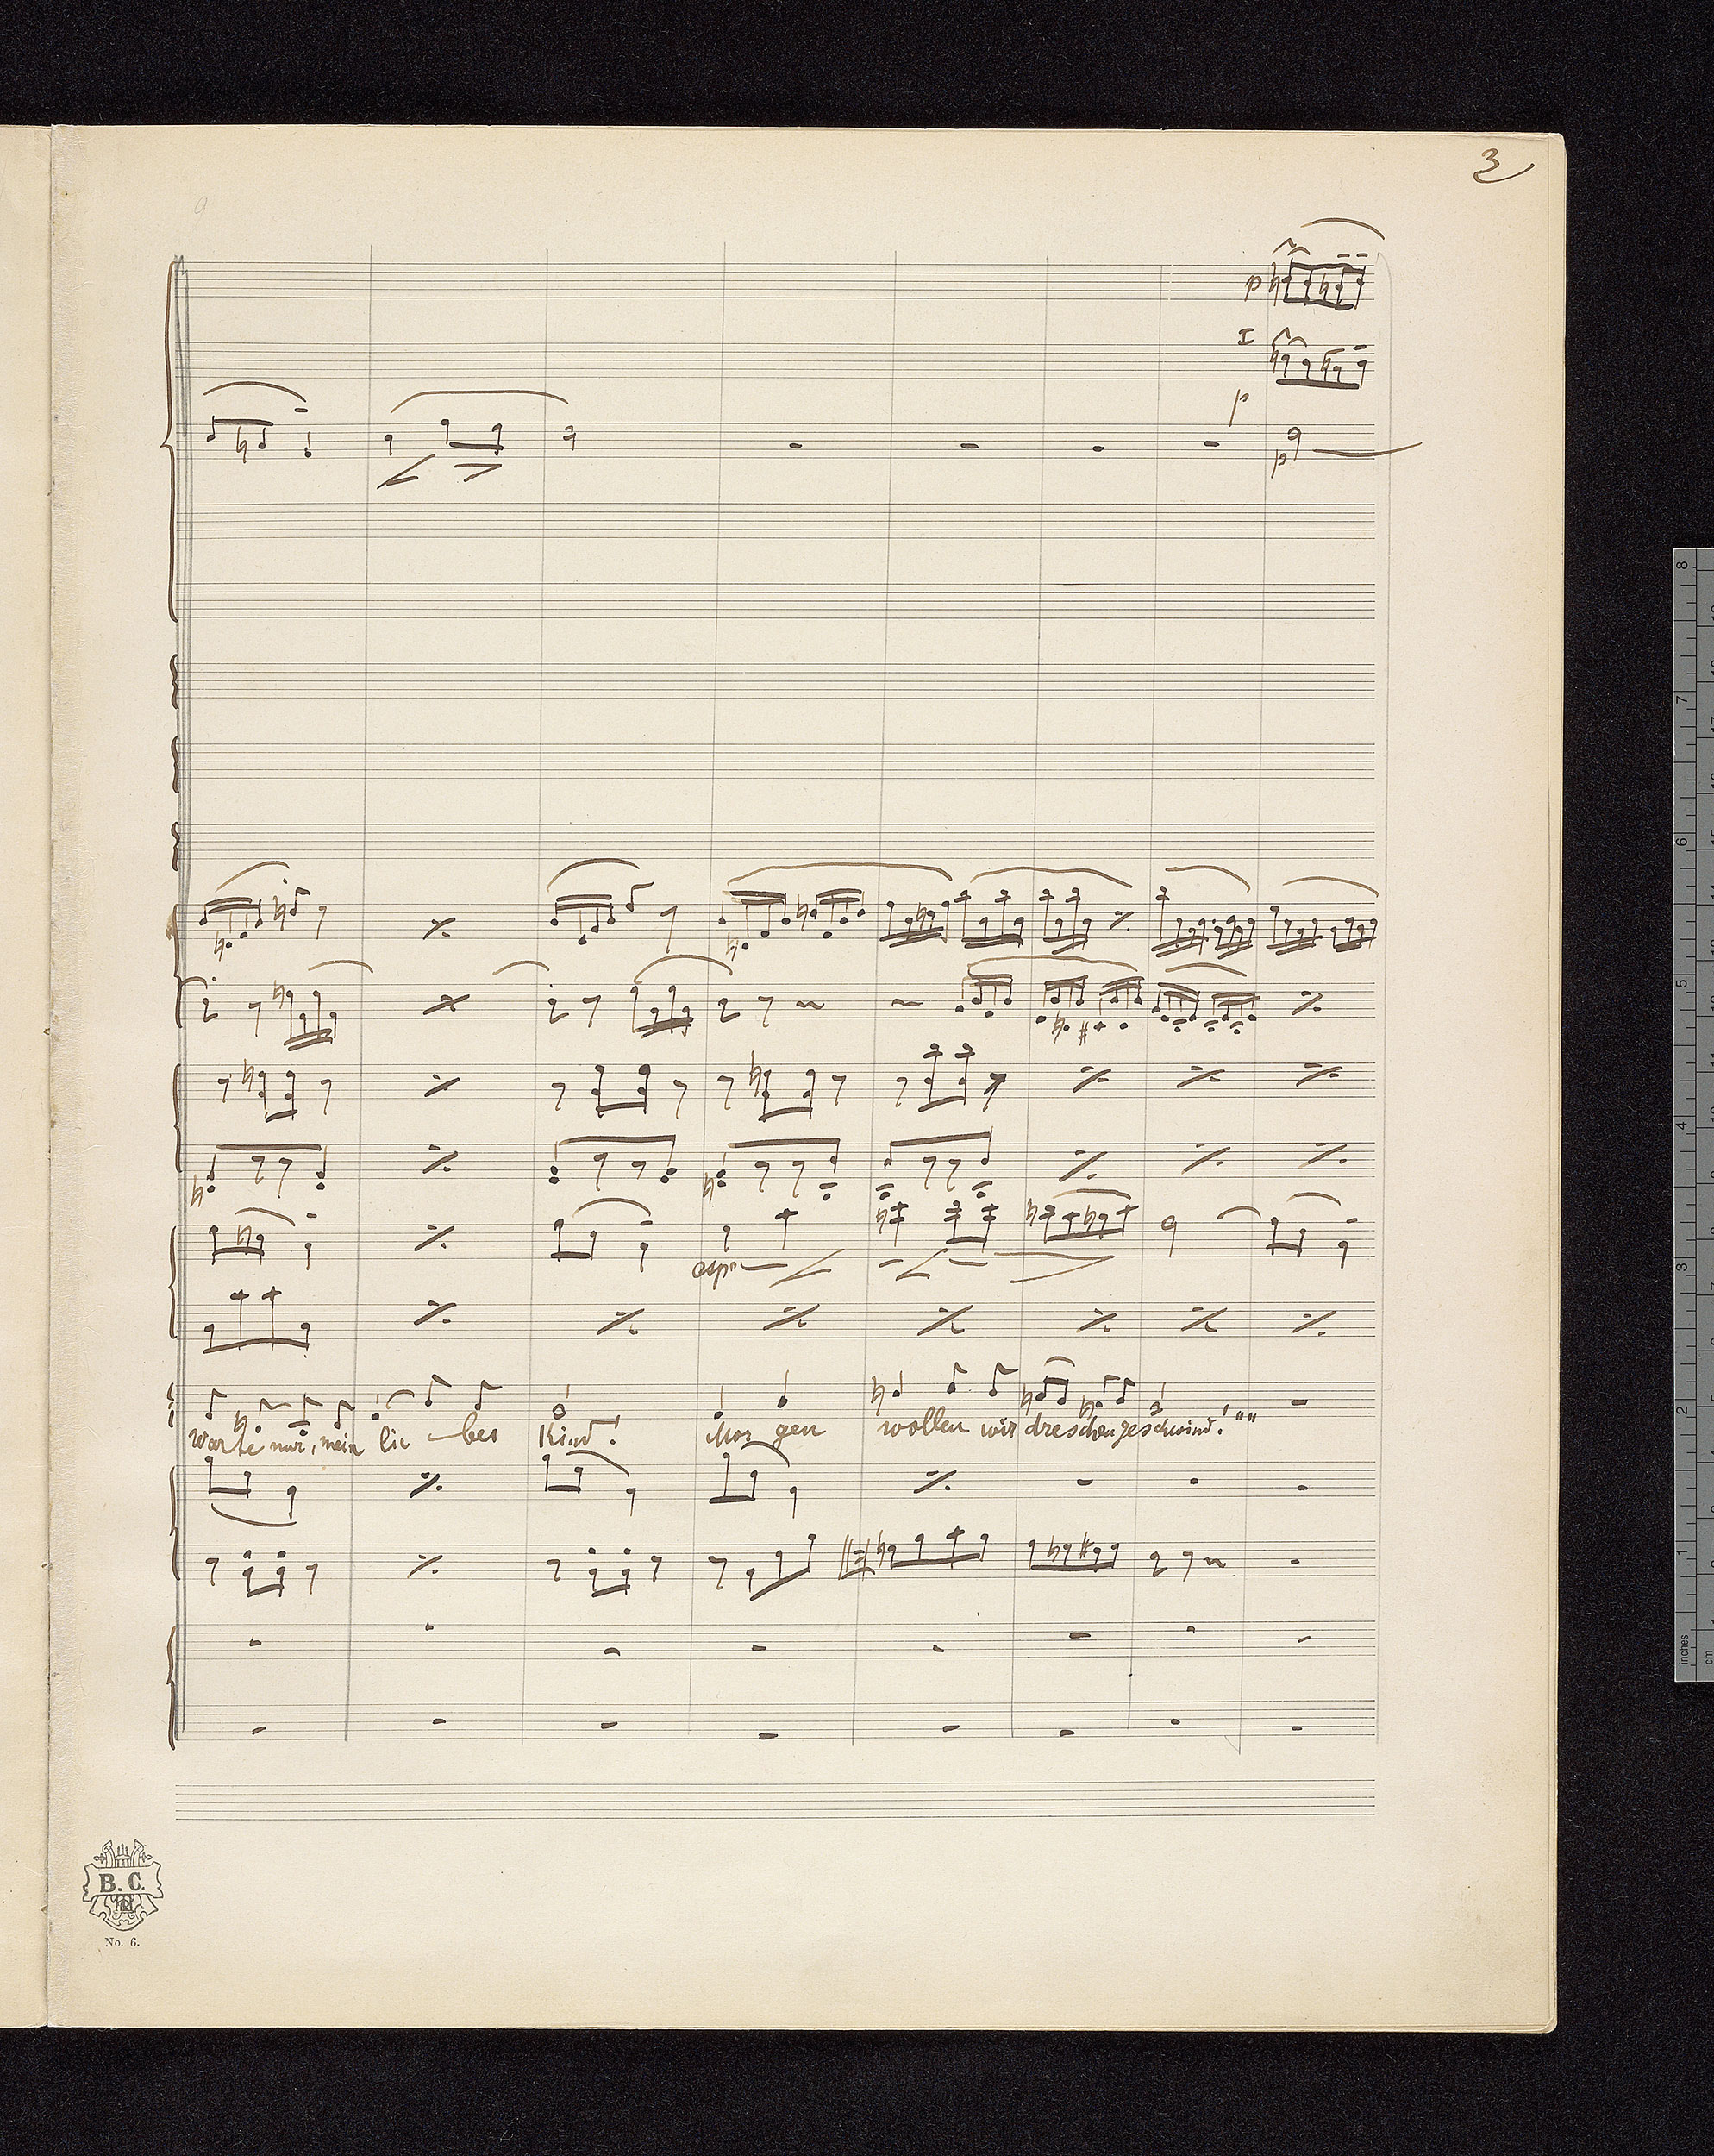 3
9
p
I
p
p
esp.
Warte nur, mein lie - bes Kind! Morgen wollen wir dreschen geschwind!""
B. C.
No. 6.
8
7
6
5
4
3
2
1
inches
cm